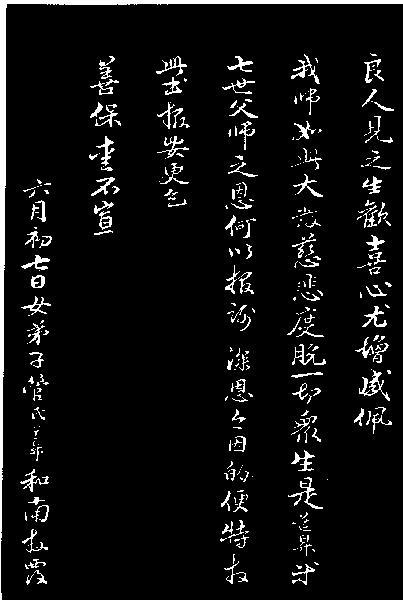 良人見之生歡喜心尤增感佩
我師如此大發慈悲度脫一切眾生是道昇
七世父師之恩何以報謝深恩々因的便特
此書報安更乞
善保重不宣
六月初七日女弟子管氏 和南拜覆